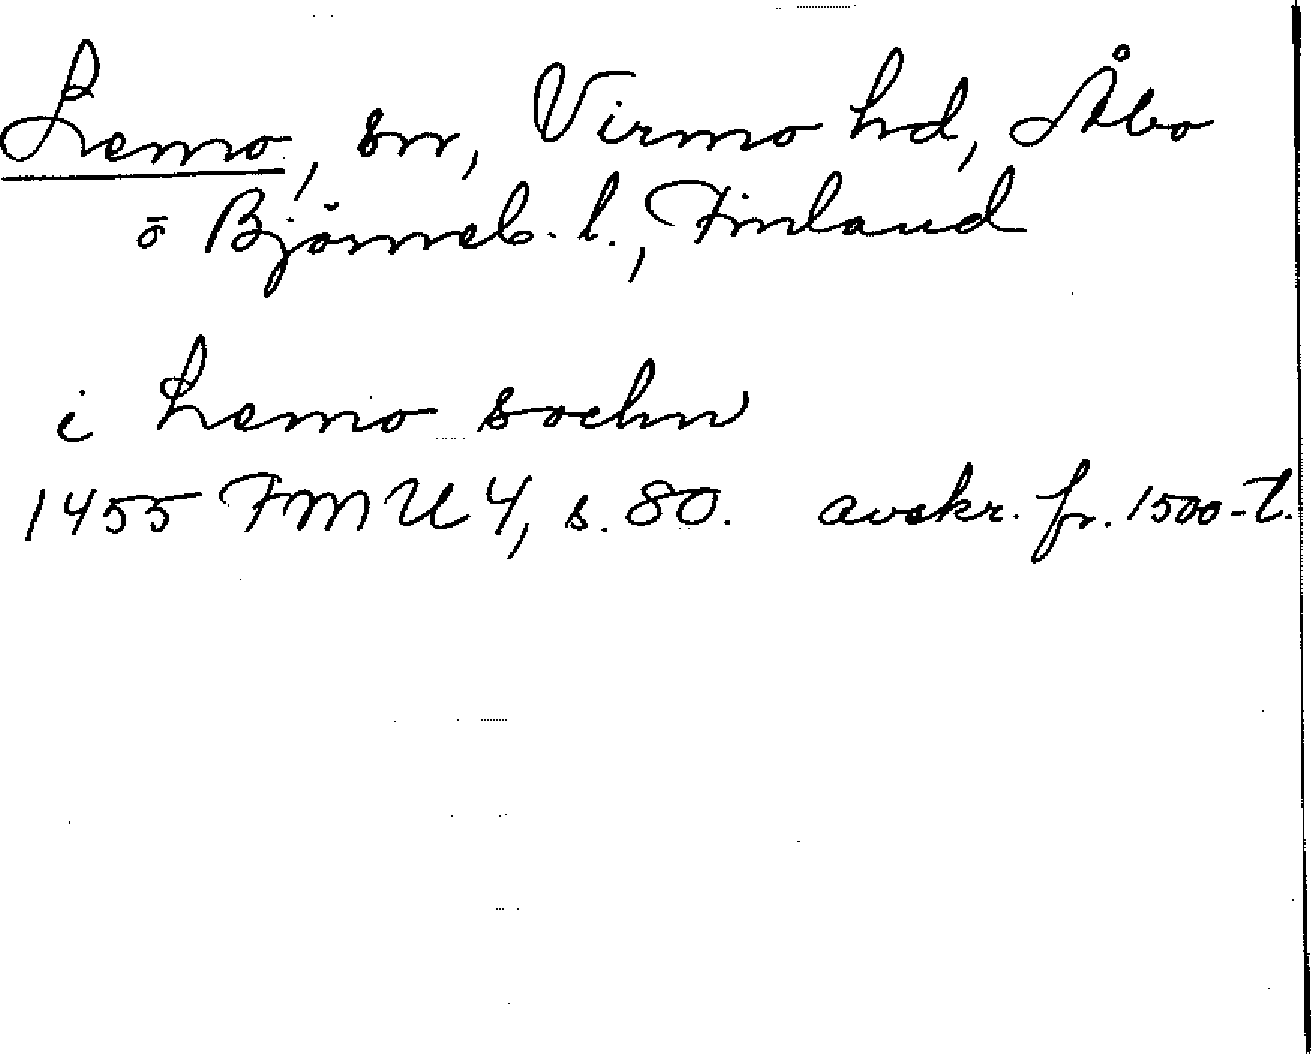 Lemo, sn, Virmo hd, Åbo
o Björneb. l., Finland
i Lemo sochn
1455 FMU 4, s. 80. avskr. fr. 1500-t.